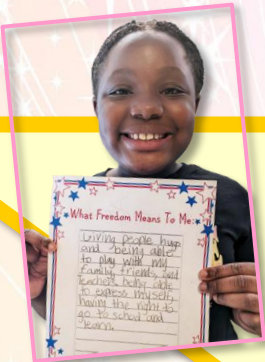 What Freedom Means To Me:
Giving people hugs
and being able
to play with my
family, friends, and
teachers being able
to express myself,
having the right to
go to school and
learn.